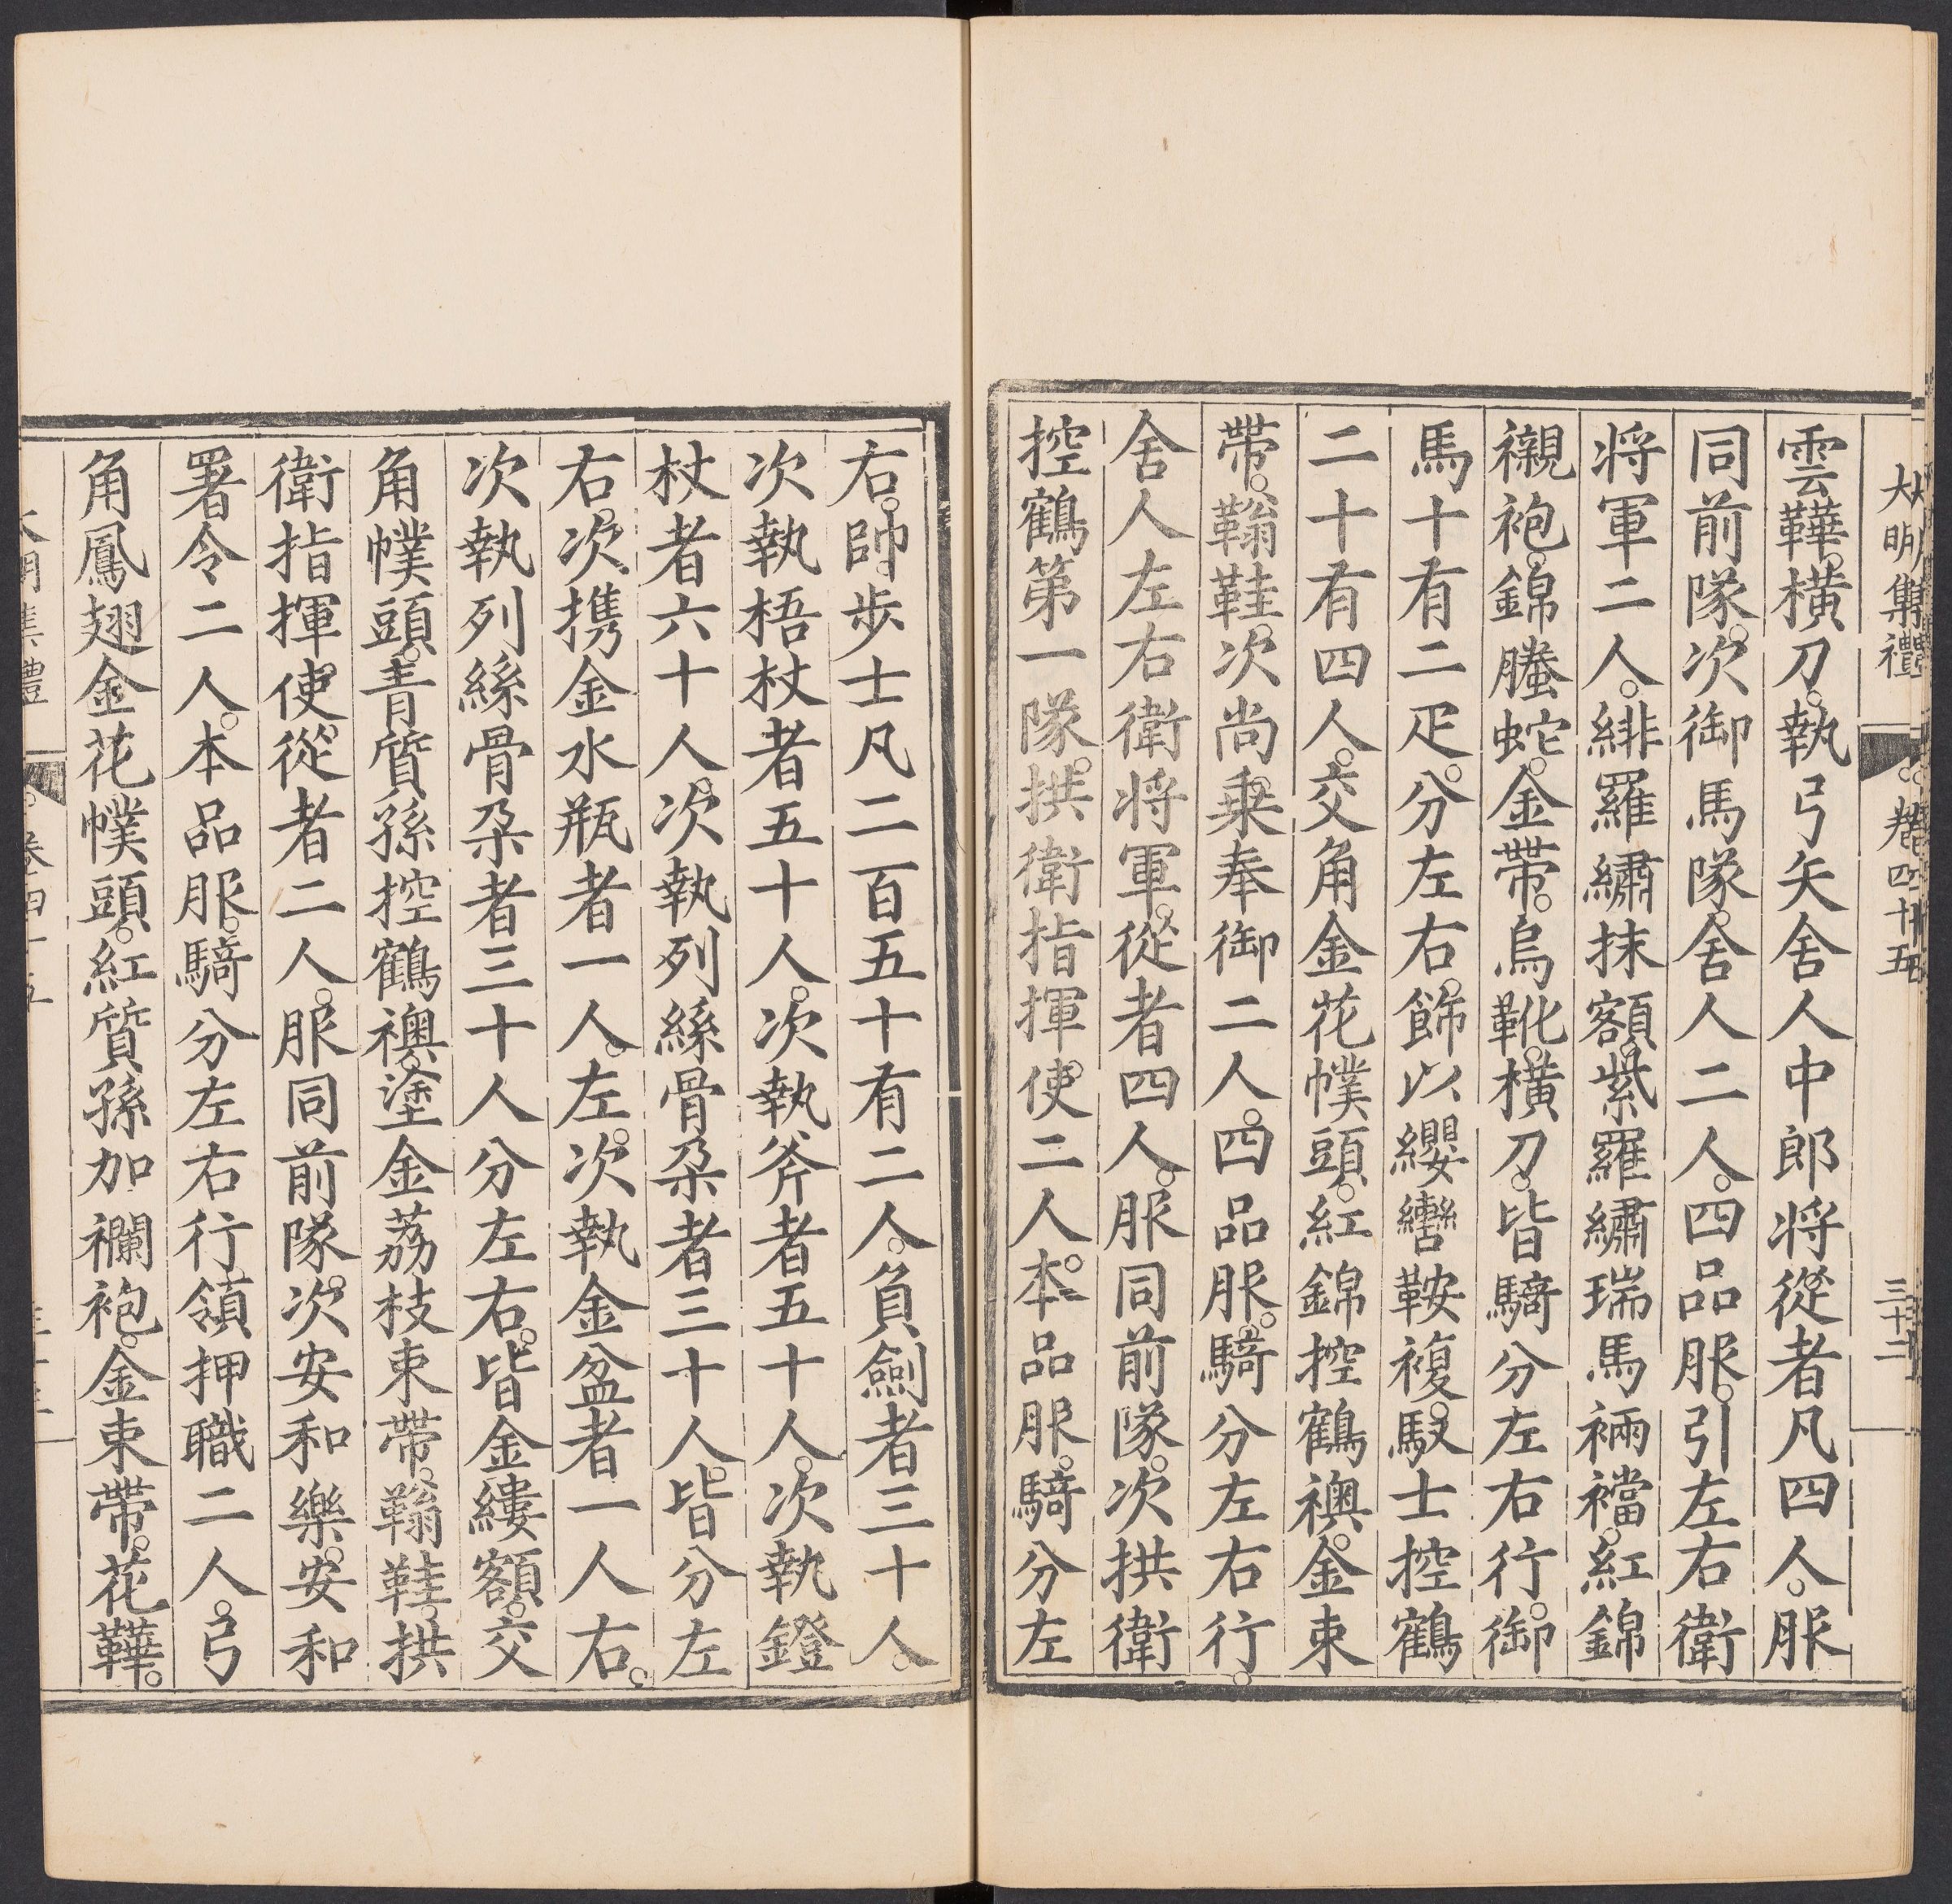 大明集禮 卷四十五 三十二
雲鞾。橫刀。執弓矢舍人中郎将從者凡四人。服
同前隊。次御馬隊。舍人二人。四品服。引左右衛
将軍二人。緋羅繡抹額。紫羅繡瑞馬裲襠。紅錦
襯袍。錦螣蛇。金帶。烏靴。橫刀。皆騎分左右行。御
馬十有二疋。分左右。飾以纓轡鞍複。馭士控鶴
二十有四人。交角金花幞頭。紅錦控鶴襖。金束
帶。鞝鞋。次尚乗奉御二人。四品服。騎分左右行。
舍人左右衛将軍。從者四人。服同前隊。次拱衛
控鶴第一隊。拱衛指揮使二人。本品服。騎分左
右。帥步士凡二百五十有二人。負劍者三十人。
次執梧杖者五十人。次執斧者五十人。次執鐙
杖者六十人。次執列絲骨朶者三十人。皆分左
右。次携金水瓶者一人。左。次執金盆者一人右。
次執列絲骨朶者三十人分左右。皆金縷額。交
角幞頭。青質孫控鶴襖。塗金荔枝束帶。鞝鞋。拱
衛指揮使。從者二人。服同前隊。次安和樂。安和
署令二人。本品服。騎分左右行。領押職二人。弓
角鳳翅金花幞頭。紅質孫加襴袍。金束帶。花鞾。